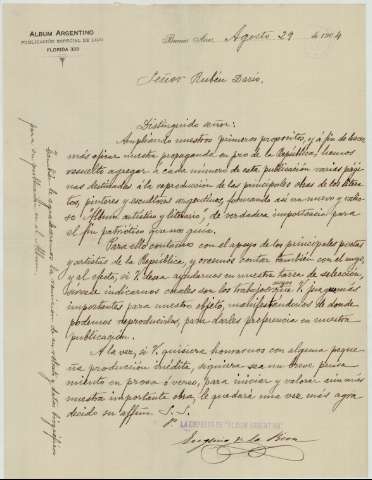 ALBUM ARGENTINO
PUBLICACIÓN ESPECIAL DE LUJO
FLORIDA
Buenos Aires, Agosto 29 de 1904
Señor Rubén Darío.
Distinguido señor:
Ampliando nuestros primeros propósitos, y á fin de hacer
más eficaz nuestra propaganda en pro de la República, hemos
resuelto agregar á cada número de esta publicación varias pági-
nas destinadas á la reproducción de las principales obras de los litera-
tos, pintores y escultores argentinos, formando así un nuevo y valio-
so "Album artístico y literario", de verdadera importancia para
el fin patriótico que nos guía.
Para ello contamos con el apoyo de los principales poetas
y artistas de la República, y creemos contar también con el suyo,
y al efecto, si V. desea ayudarnos en nuestra tarea de selección,
sírvase indicarnos cuales son los trabajos suyos que V. juzga más
importantes para nuestro objeto, manifestándonos de donde
podemos reproducirlos, para darles preferencia en nuestra
publicación.
A la vez, si V. quisiera honrarnos con alguna peque-
ña producción inédita, siquiera sea un breve pensa-
miento en prosa ó verso, para iniciar y valorar aún más
nuestra importante obra, le quedará una vez más agra-
decido su affmo. S. S.
LA EMPRESA DE "ALBUM ARGENTINO"
Eugenio de la
También le agradeceríamos la remisión de su retrato y datos biográficos
para su publicación en el Album.